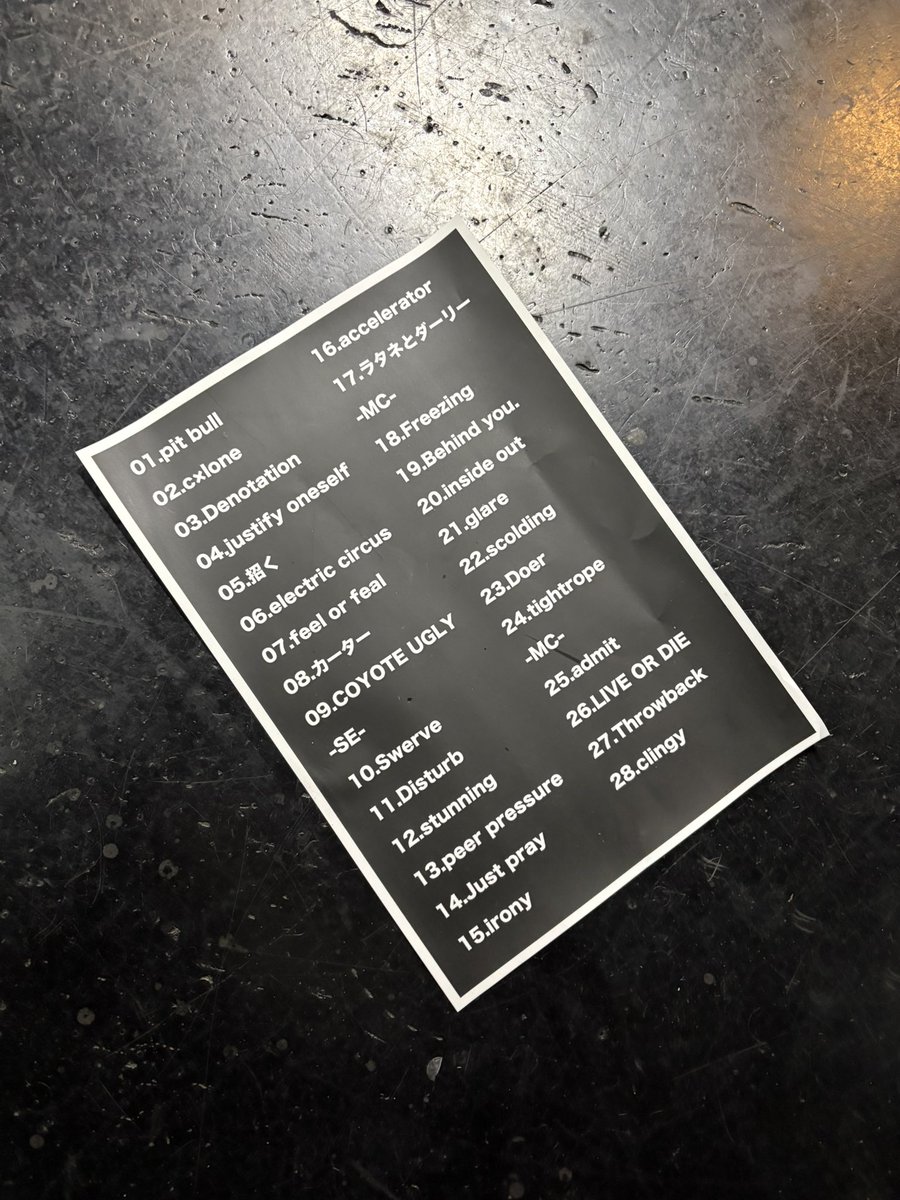 01.pit bull
02.c×lone
03.Denotation
04.justify oneself
05.招く
06.electric circus
07.feel or feal
08.カーター
09.COYOTE UGLY
-SE-
10.Swerve
11.Disturb
12.stunning
13.peer pressure
14.Just pray
15.irony
16.accelerator
17.ラタネとダーリー
-MC-
18.Freezing
19.Behind you.
20.inside out
21.glare
22.scolding
23.Doer
24.tightrope
-MC-
25.admit
26.LIVE OR DIE
27.Throwback
28.clingy